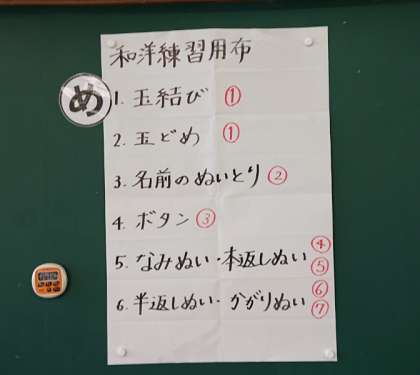 和洋練習用布
め
1. 玉結び ①
2. 玉どめ ①
3. 名前のぬいとり ②
4. ボタン ③
5. なみぬい・本返しぬい ④ ⑤
6. 半返しぬい・かがりぬい ⑥ ⑦